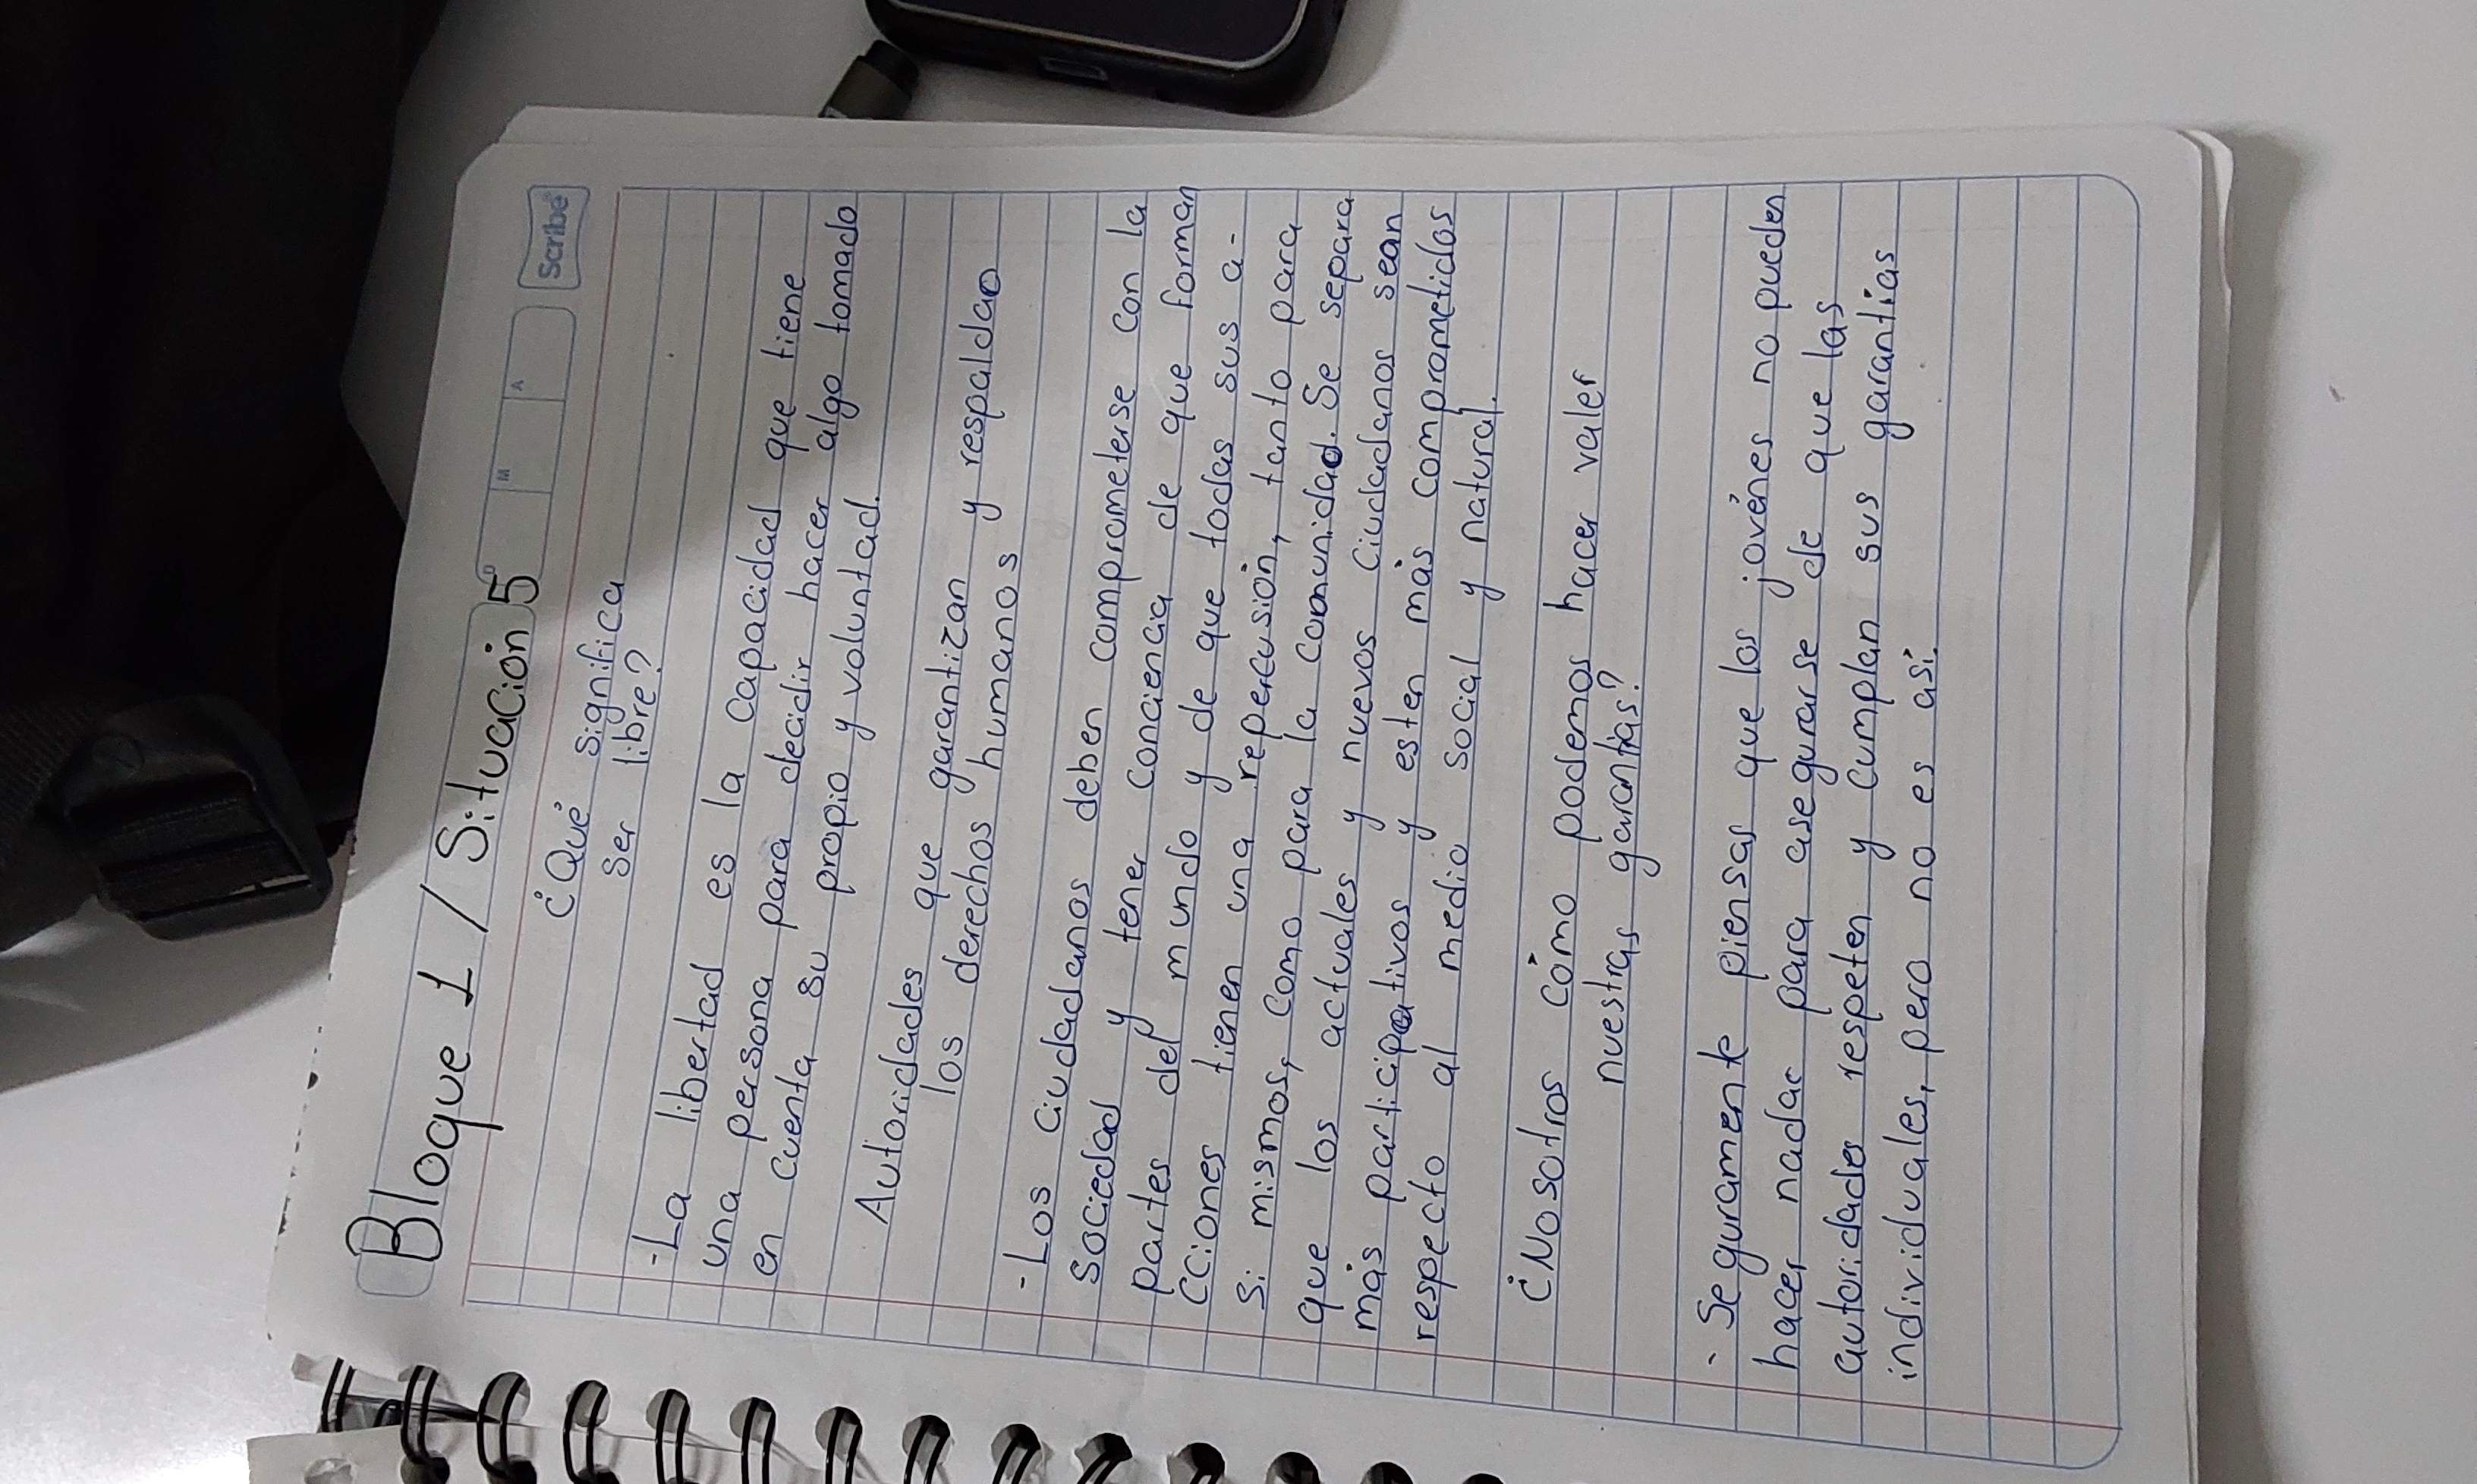 Bloque 1 / Situación 5
D M A
Scribe
¿Qué significa
ser libre?
-La libertad es la capacidad que tiene
una persona para decidir hacer algo tomado
en cuenta su propio y voluntad.
Autoridades que garantizan y respaldao
los derechos humanos
-Los ciudadanos deben comprometerse con la
sociedad y tener conciencia de que forman
partes del mundo y de que todas sus a-
cciones tienen una repercusión, tanto para
si mismos, como para la comunidad. Se separa
que los actuales y nuevos ciudadanos sean
más participativos y esten más comprometidos
respecto al medio social y natural.
¿Nosotros cómo podemos hacer valer
nuestras garantías?
- Seguramente piensas que los jovénes no pueden
hacer nadac para asegurarse de que las
autoridades respeten y cumplan sus garantias
individuales, pero no es así.